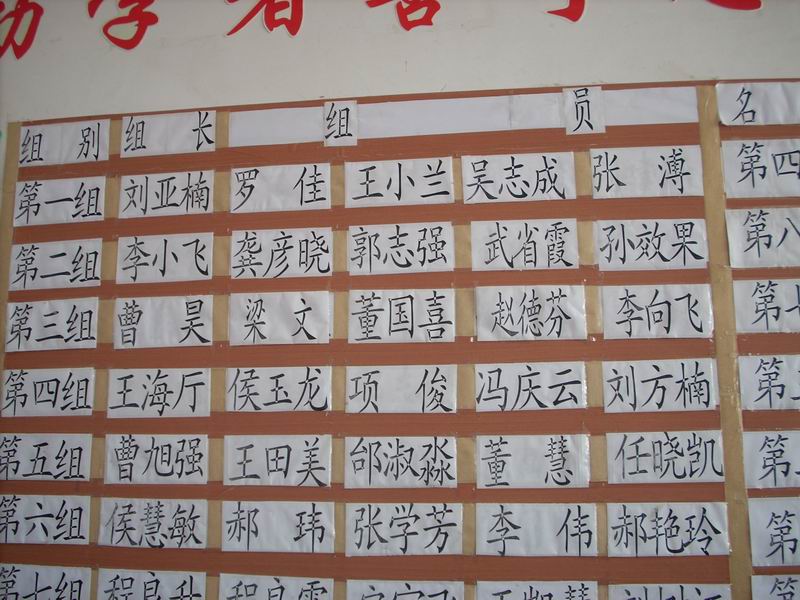 学者
组别 组长 组员 名
第一组 刘亚楠 罗佳 王小兰 吴志成 张溥 第四
第二组 李小飞 龚彦晓 郭志强 武省霞 孙效果 第八
第三组 曹昊 梁文 董国喜 赵德芬 李向飞 第七
第四组 王海厅 侯玉龙 项俊 冯庆云 刘方楠 第
第五组 曹旭强 王田美 邰淑淼 董慧 任晓凯 第
第六组 侯慧敏 郝玮 张学芳 李伟 郝艳玲 第
第七组